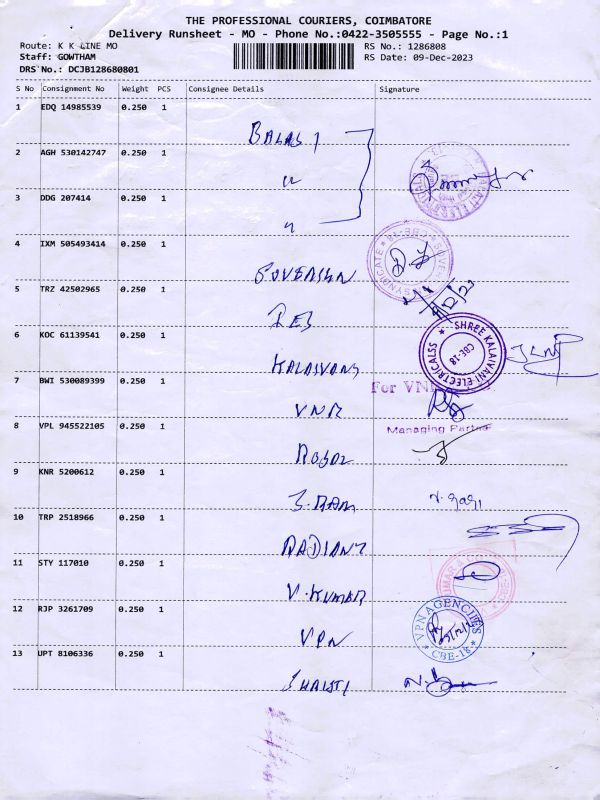 THE PROFESSIONAL COURIERS, COIMBATORE
Delivery Runsheet - MO - Phone No.:0422-3505555 - Page No.:1
Route: K K LINE MO RS No.: 1286808
Staff: GOWTHAM RS Date: 09-Dec-2023
DRS No.: DCJB128680801
S No Consignment No Weight PCS Consignee Details Signature
1 EDQ 14985539 0.250 1
BALAJI
2 AGH 530142747 0.250 1
"
3 DDG 207414 0.250 1
"
4 IXM 505493414 0.250 1
SYNDICATE
5 TRZ 42502965 0.250 1
6 KOC 61139541 0.250 1
SHREE KALAIVANI ELECTRICALSS
CBE-18
KALAIVANI
7 BWI 530089399 0.250 1
For VN
VNR
Managing Partner
8 VPL 945522105 0.250 1
9 KNR 5200612 0.250 1
10 TRP 2518966 0.250 1
RADIANT
11 STY 117010 0.250 1
V. KUMAR
12 RJP 3261709 0.250 1
VPN AGENCIES
CBE-18
VPN
13 UPT 8106336 0.250 1